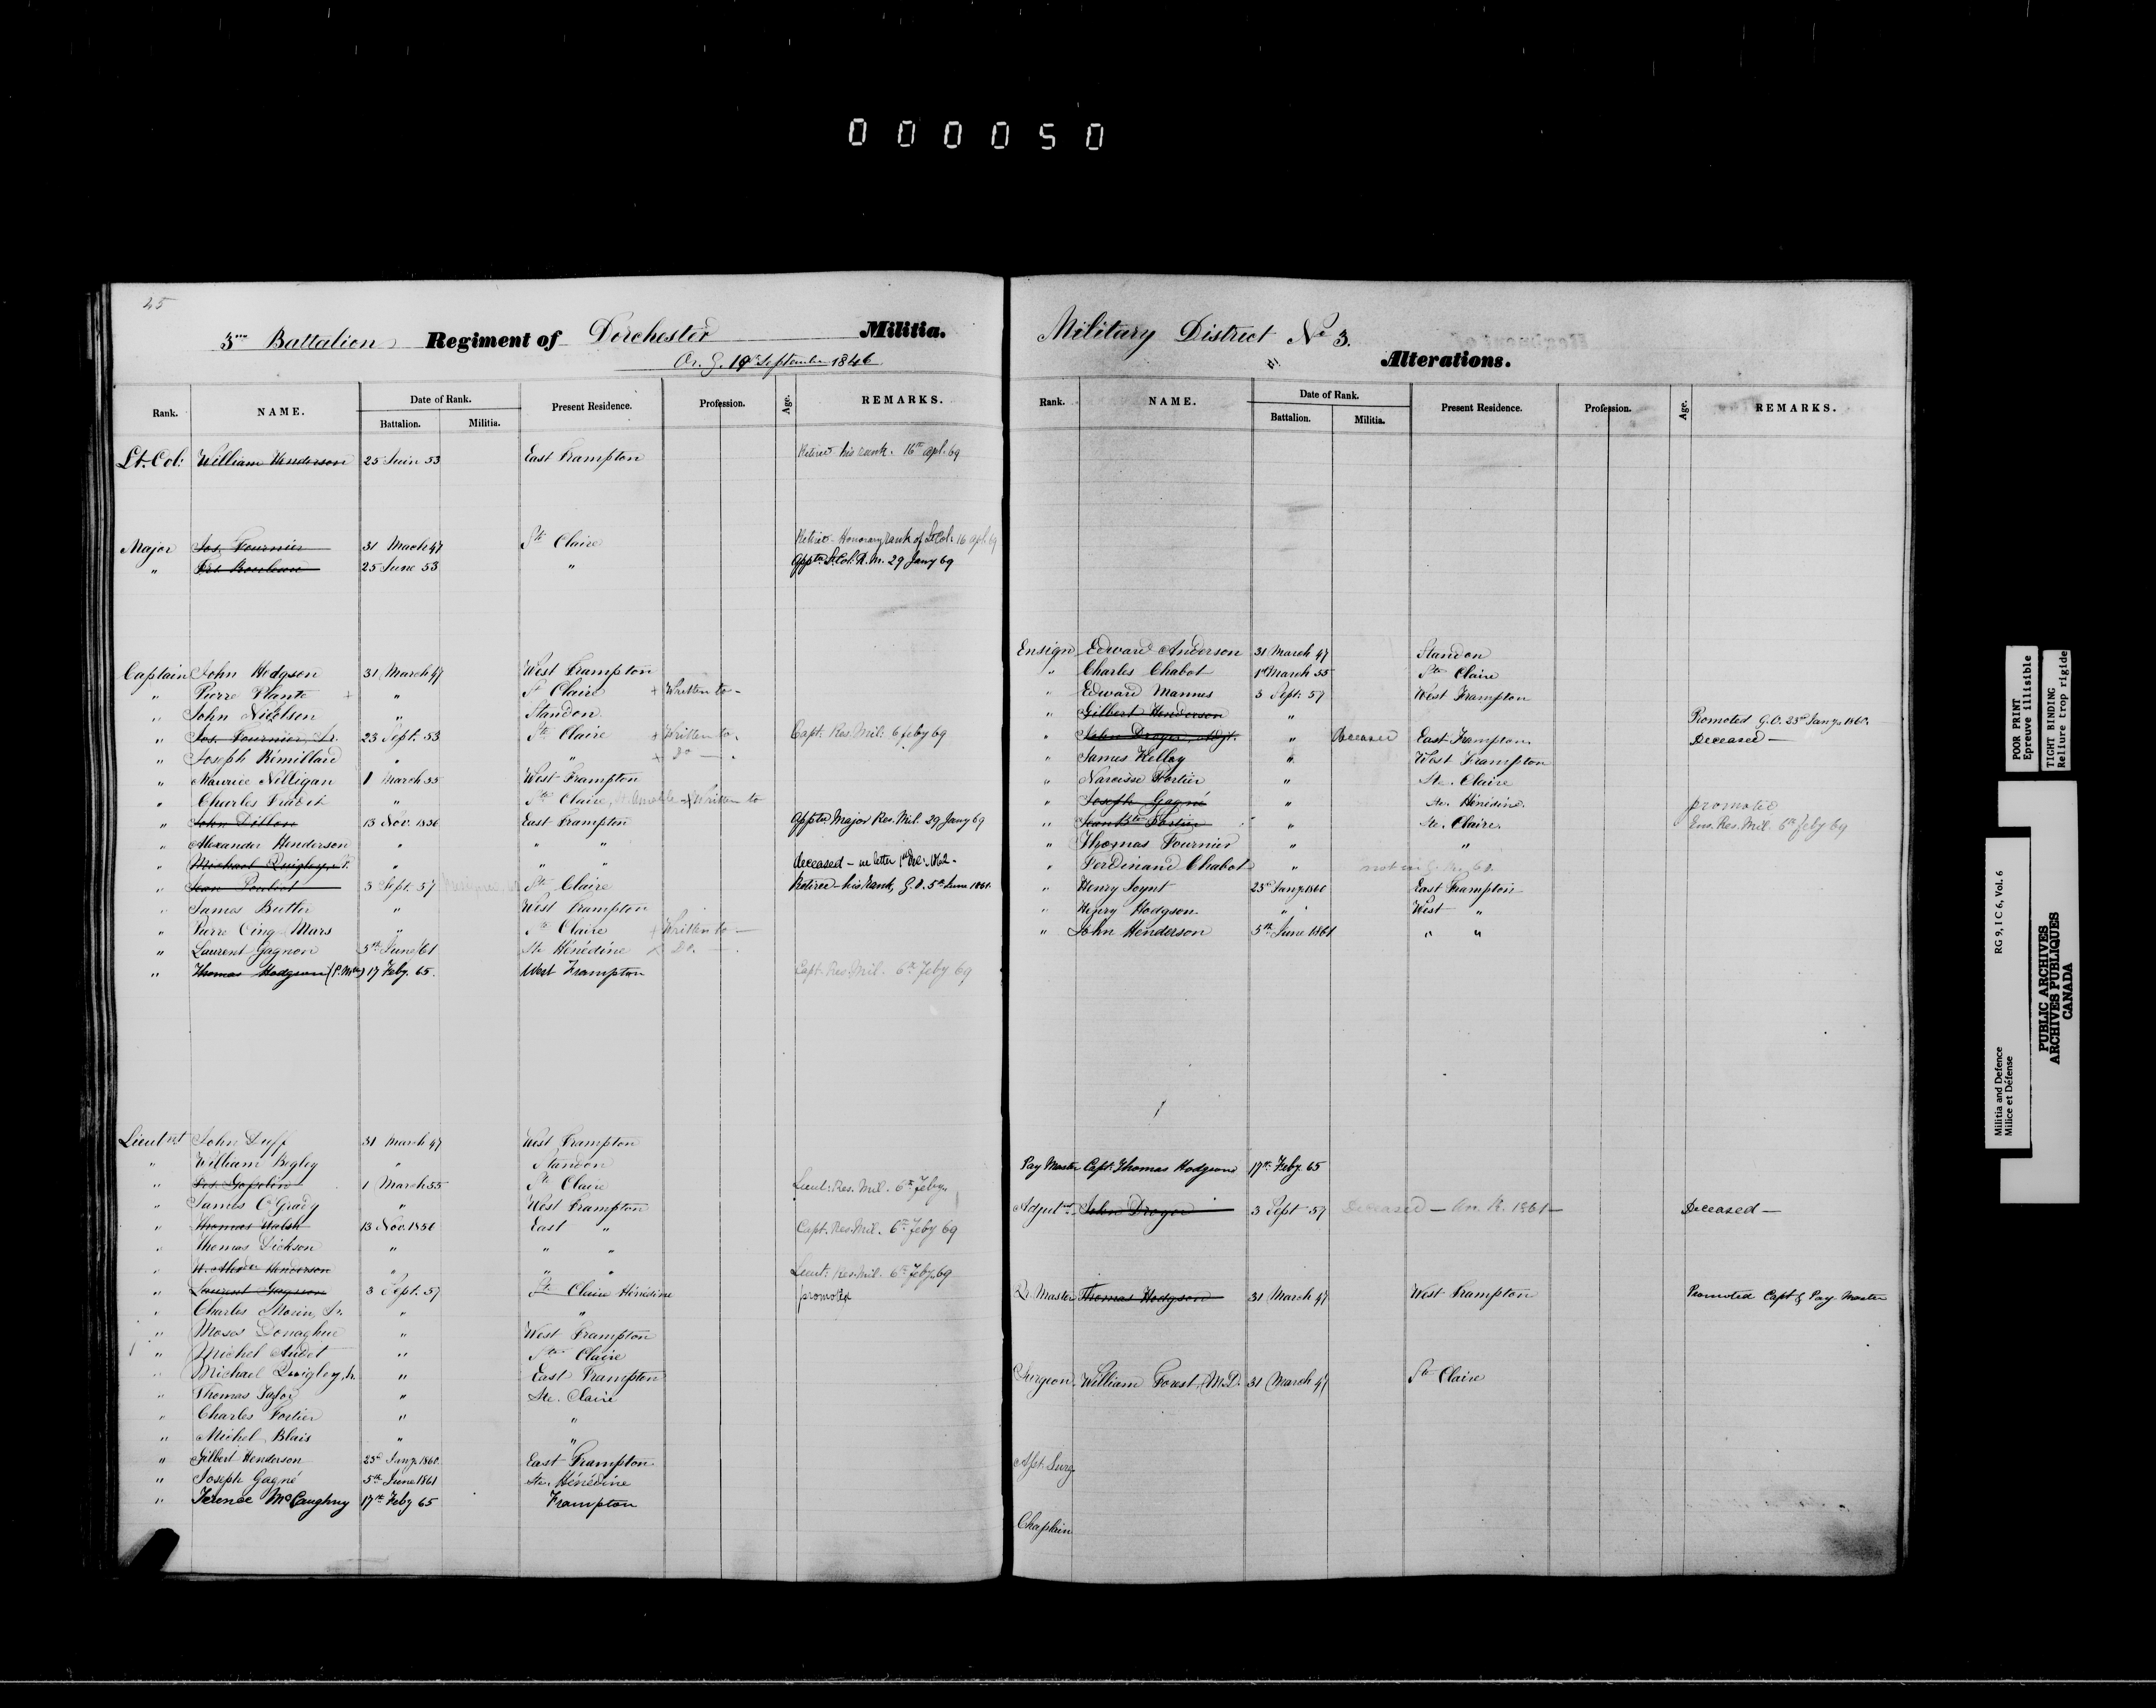 000050
25
3me Battalion Regiment of Dorchester Militia.
Or. G. 19th September 1846
Rank. NAME. Date of Rank. Present Residence. Profession. Age. REMARKS.
Battalion. Militia.
Lt. Col: William Henderson 25 Juin 53 East Frampton Retired his rank. 16th apl. 69
Major Jos. Fournier 31 Mach 47 Ste Claire Retired - Honorary rank of Lt Col: 16 apl. 69
" 25 June 53 " Appted Lt. Col. R. M. 29 Jany 69
Captain John Hodgson 31 March 47 West Frampton
" Pierre Plante + " St Claire + Written to -
" John Nicelson " Standon
" Jos. Fournier, Jr. 23 Sept. 53 Ste Claire + Written to. Capt. Res. Mil. 6 feby 69
" Joseph Rémillard " " + Do -
" Maurice Nilligan 1 March 55 West Frampton
" Charles " Ste Claire, + Written to
" John Dillon 13 Nov. 1856 East Frampton Appted Major Res. Mil. 29 Jany 69
" Alexander Henderson " " "
" Michael Quigley, Sr. " " " deceased - see letter 1st Dec. 1862 -
" Jean Pouliot 3 Sept. 57 Ste Claire Retired - his rank, G. O. 5th June 1861.
" James Butler " West Frampton
" Pierre Cinq-Mars " Ste Claire + Written to -
" Laurent Gagnon 5th June '61 Ste Hénédine × Do. -
" Thomas Hodgson (P. Mter) 17 Feby. 65. West Frampton Capt. Res. Mil. 6th Feby 69
Lieutnt John Duff 31 March 47 West Frampton
" William Begley " Standon
" Frs. Gosselin 1 March 55 Ste Claire Lieut: Res. Mil. 6th Feby
" James O'Grady " West Frampton
" Thomas Walsh 13 Nov. 1856 East " Capt. Res. Mil. 6th Feby 69
" Thomas Dickson " " "
" W. Alexder Henderson " " " Lieut: Res. Mil. 6th Feby. 69
" Laurent Gagnon 3 Sept. 57 Ste Claire Hénédine promoted
" Charles Morin, Sr. " "
" Moses Donaghue " West Frampton
" Michel Audet " Ste Claire
" Michael Quigley, Jr. " East Frampton
" Thomas Taylor " Ste. Claire
" Charles Fortier " "
" Michel Blais " "
" Gilbert Henderson 23d Jany. 1860. East Frampton
" Joseph Gagné 5th June 1861 Ste. Hénédine
" Terence McCaughny 17th Feby 65 Frampton
Military District No 3.
Alterations.
Rank. NAME. Date of Rank. Present Residence. Profession. Age. REMARKS.
Battalion. Militia.
Ensign Edward Anderson 31 March 47 Standon
" Charles Chabot 1st March 55 Ste Claire
" Edward Mannus 3 Sept. 57 West Frampton
" Gilbert Henderson " Promoted G.O. 23rd Jany. 1860.
" John Droger, Adjt. " Deceased East Frampton Deceased -
" James Kelloy " West Frampton
" Narcisse Fortier " Ste. Claire
" Joseph Gagné " Ste. Hénédine. promoted
" Jean Bte Fortier " Ste. Claire. Ens. Res. Mil. 6th feby 69
" Thomas Fournier " "
" Ferdinand Chabot " not in
" Henry Joynt 23d Jany. 1860 East Frampton
" Henry Hodgson " West "
" John Henderson 5th June 1861 " "
Pay Master Capt. Thomas Hodgson 17th Feby. 65
Adjutnt John Droger 3 Sept 57 Deceased - An. R. 1861 - Deceased -
Qr. Master Thomas Hodgson 31 March 47 West Frampton Promoted Capt & Pay-Master
Surgeon. William Forest, M.D. 31 March 47 Ste Claire
Asst. Surg.
Chaplain
POOR PRINT
Epreuve illisible
TIGHT BINDING
Reliure trop rigide
Militia and Defence RG 9, I C 6, Vol. 6
Milice et Défense
PUBLIC ARCHIVES
ARCHIVES PUBLIQUES
CANADA